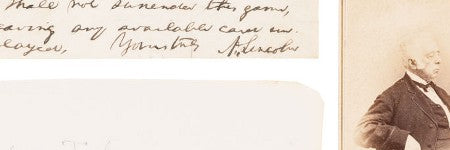 shall not surrender this game,
leaving any available card un-
played. Yours truly A. Lincoln